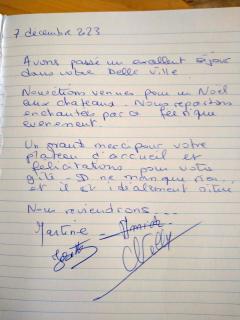 7 décembre 223
Avons passé un excellent séjour
dans votre belle ville.
Nous étions venues pour un Noël
aux chateaux. Nous repartons
enchantées par ce féerique
evenement.
Un grand merci pour votre
plateau d'accueil et
félicitations pour votre
gîte - Il ne manque rien...
et il est idéalement situé
Nous reviendrons...
Martine -